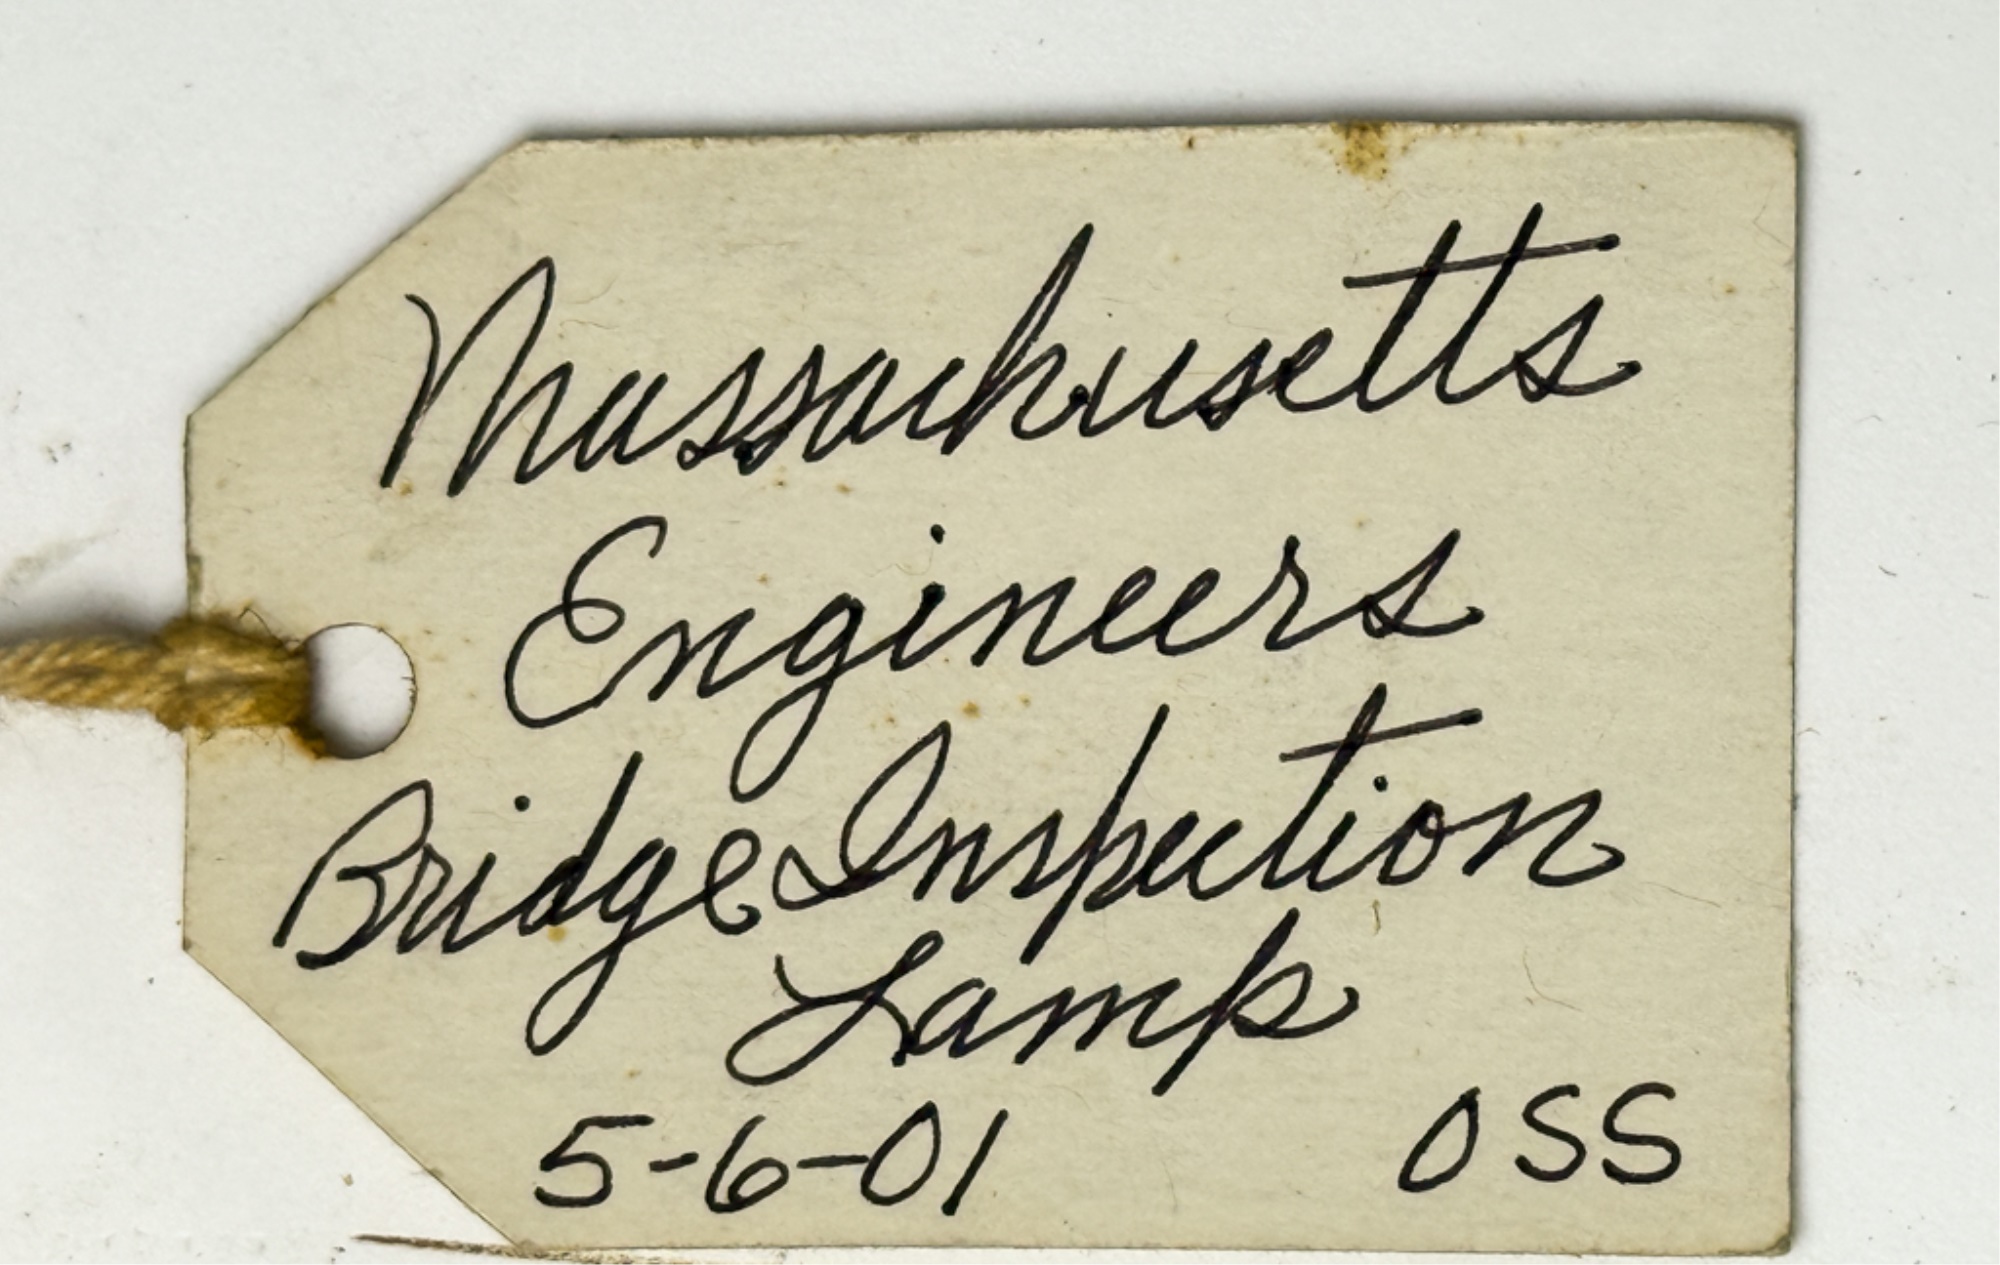 Massachusetts
Engineers
Bridge Inspection
Lamp
5-6-01 OSS